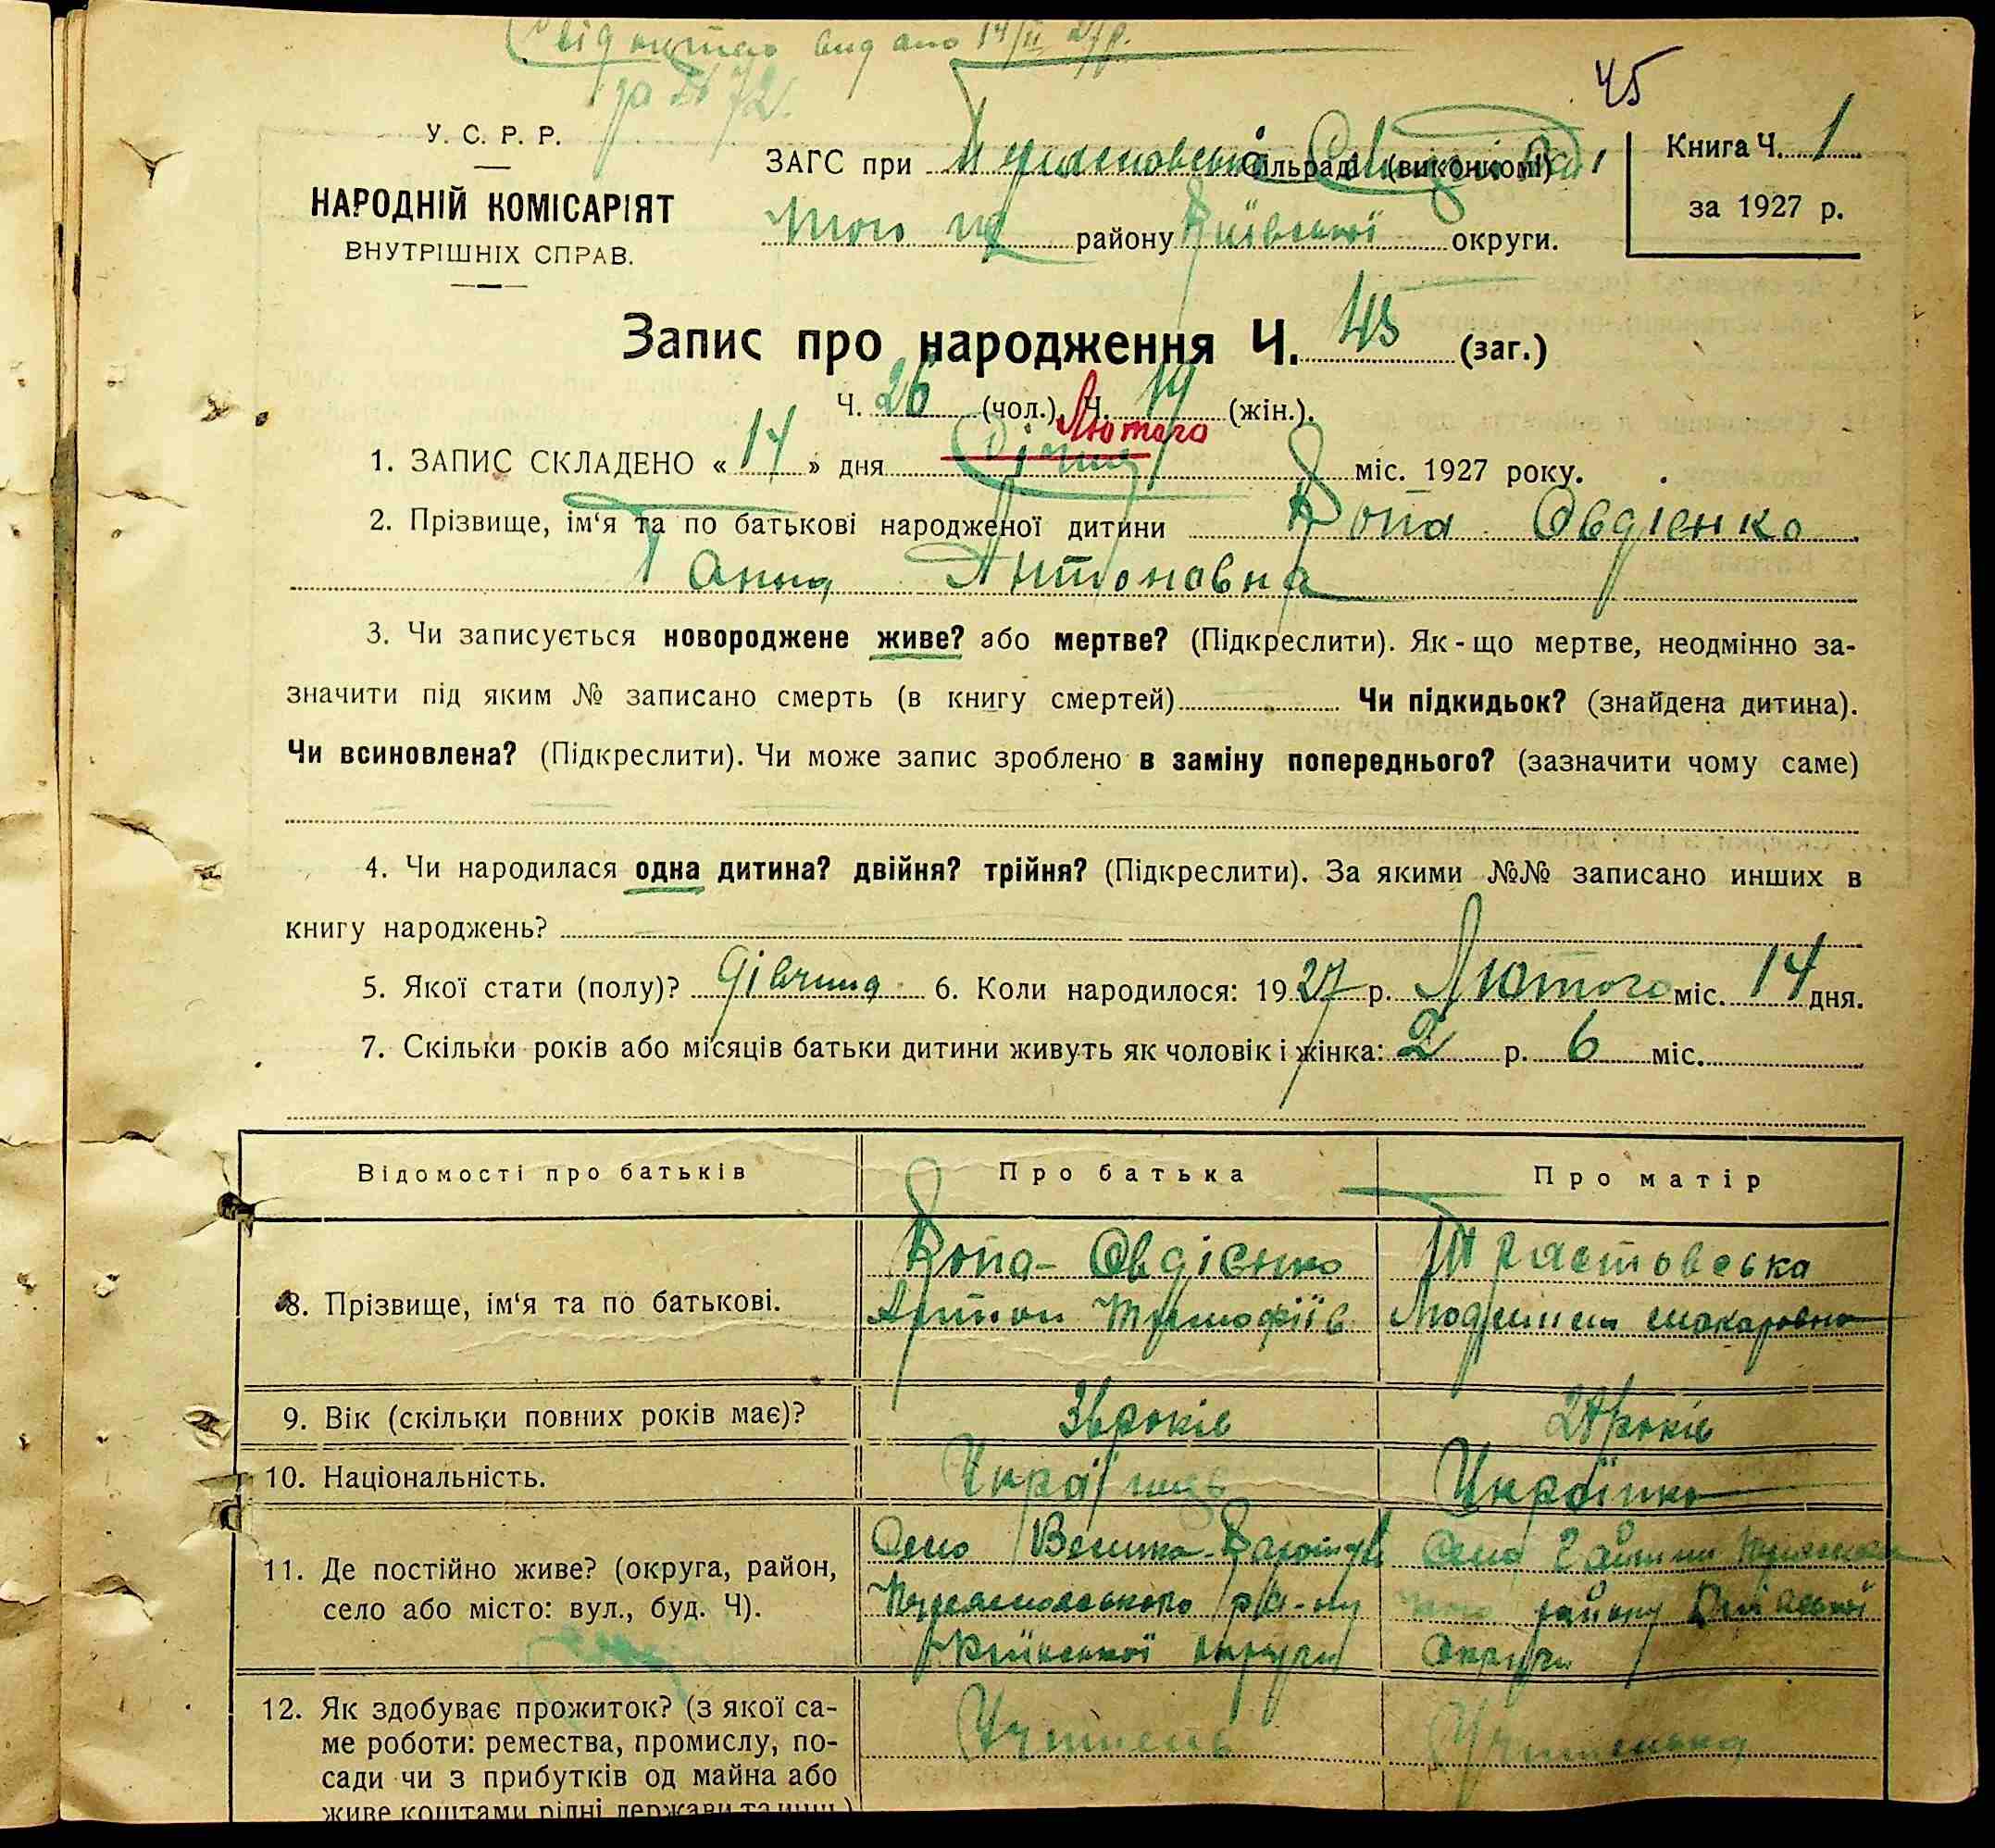 видано 14/II 27 р.
за № 72.
45
У. С. Р. Р.
НАРОДНІЙ КОМІСАРІЯТ
ВНУТРІШНІХ СПРАВ.
ЗАГС при сільраді (виконкомі)
того ж району Київської округи.
Книга Ч. 1
за 1927 р.
Запис про народження Ч. 45 (заг.)
Ч. 26 (чол.), Ч. 19 (жін.).
Лютого
1. ЗАПИС СКЛАДЕНО « 14 » дня міс. 1927 року.
2. Прізвище, ім‘я та по батькові народженої дитини Копа Овдієнко
Анна Антоновна
3. Чи записується новороджене живе? або мертве? (Підкреслити). Як-що мертве, неодмінно за-
значити під яким № записано смерть (в книгу смертей) Чи підкидьок? (знайдена дитина).
Чи всиновлена? (Підкреслити). Чи може запис зроблено в заміну попереднього? (зазначити чому саме)
4. Чи народилася одна дитина? двійня? трійня? (Підкреслити). За якими №№ записано инших в
книгу народжень?
5. Якої стати (полу)? дівчина 6. Коли народилося: 1927 р. Лютого міс. 14 дня.
7. Скільки років або місяців батьки дитини живуть як чоловік і жінка: 2 р. 6 міс.
Відомості про батьків Про батька Про матір
8. Прізвище, ім‘я та по батькові.
Копа-Овдієнко
Антон Тимофіїв
Людмила Макаровна
9. Вік (скільки повних років має)? років років
10. Національність. Українець Українка
11. Де постійно живе? (округа, район,
село або місто: вул., буд. Ч).
Село Велика-Каратуль
р-ну
Київської округи
Село
району
Округи
12. Як здобуває прожиток? (з якої са-
ме роботи: ремества, промислу, по-
сади чи з прибутків од майна або
живе коштами рідні держави та инш.)
Учитель Учителька